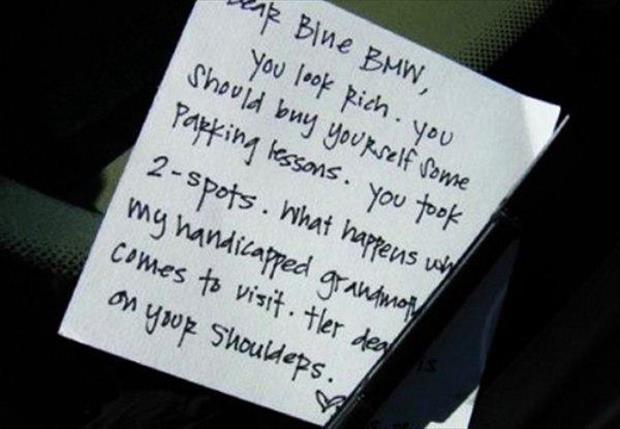 Dear Blue BMW,
You look Rich. You
Should buy yourself Some
Parking lessons. You took
2-spots. What happens
my handicapped
comes to visit. Her
on your shoulders.
is